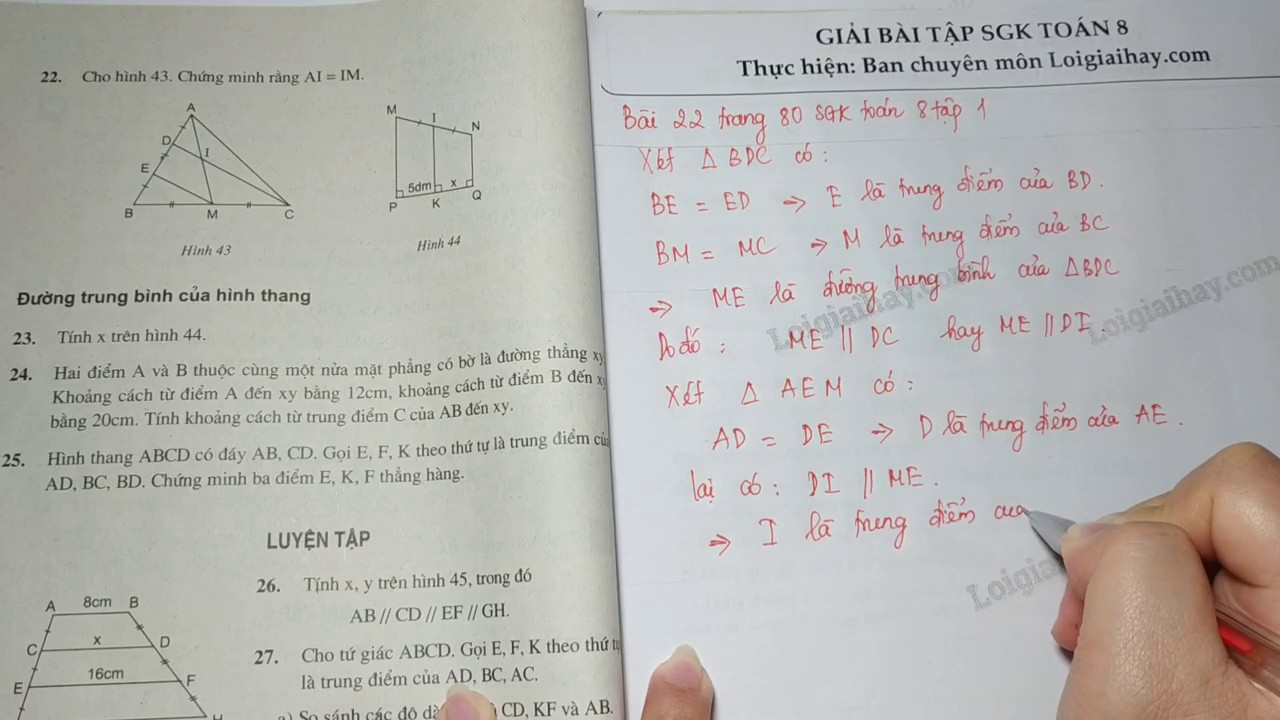 22. Cho hình 43. Chứng minh rằng AI = IM.
A
D
I
E
B
M
C
Hình 43
M
I
N
5dm
x
P
K
Q
Hình 44
Đường trung bình của hình thang
23. Tính x trên hình 44.
24. Hai điểm A và B thuộc cùng một nửa mặt phẳng có bờ là đường thẳng xy
Khoảng cách từ điểm A đến xy bằng 12cm, khoảng cách từ điểm B đến
bằng 20cm. Tính khoảng cách từ trung điểm C của AB đến xy.
25. Hình thang ABCD có đáy AB, CD. Gọi E, F, K theo thứ tự là trung điểm
AD, BC, BD. Chứng minh ba điểm E, K, F thẳng hàng.
LUYỆN TẬP
26. Tính x, y trên hình 45, trong đó
AB // CD // EF // GH.
27. Cho tứ giác ABCD. Gọi E, F, K theo thứ
là trung điểm của AD, BC, AC.
a) So sánh các độ dà CD, KF và AB.
A
8cm
B
C
x
D
E
16cm
F
GIẢI BÀI TẬP SGK TOÁN 8
Thực hiện: Ban chuyên môn Loigiaihay.com
Bài 22 trang 80 SGK toán 8 tập 1
Xét Δ BDC có:
BE = ED ⇒ E là trung điểm của BD.
BM = MC ⇒ M là trung điểm của BC
⇒ ME là đường trung bình của ΔBDC
Do đó: ME // DC hay ME // DI.
Xét Δ AEM có:
AD = DE ⇒ D là trung điểm của AE.
lại có: DI // ME.
⇒ I là trung điểm cua
Loigiaihay.com
Loigiaihay.com
Loigiaih